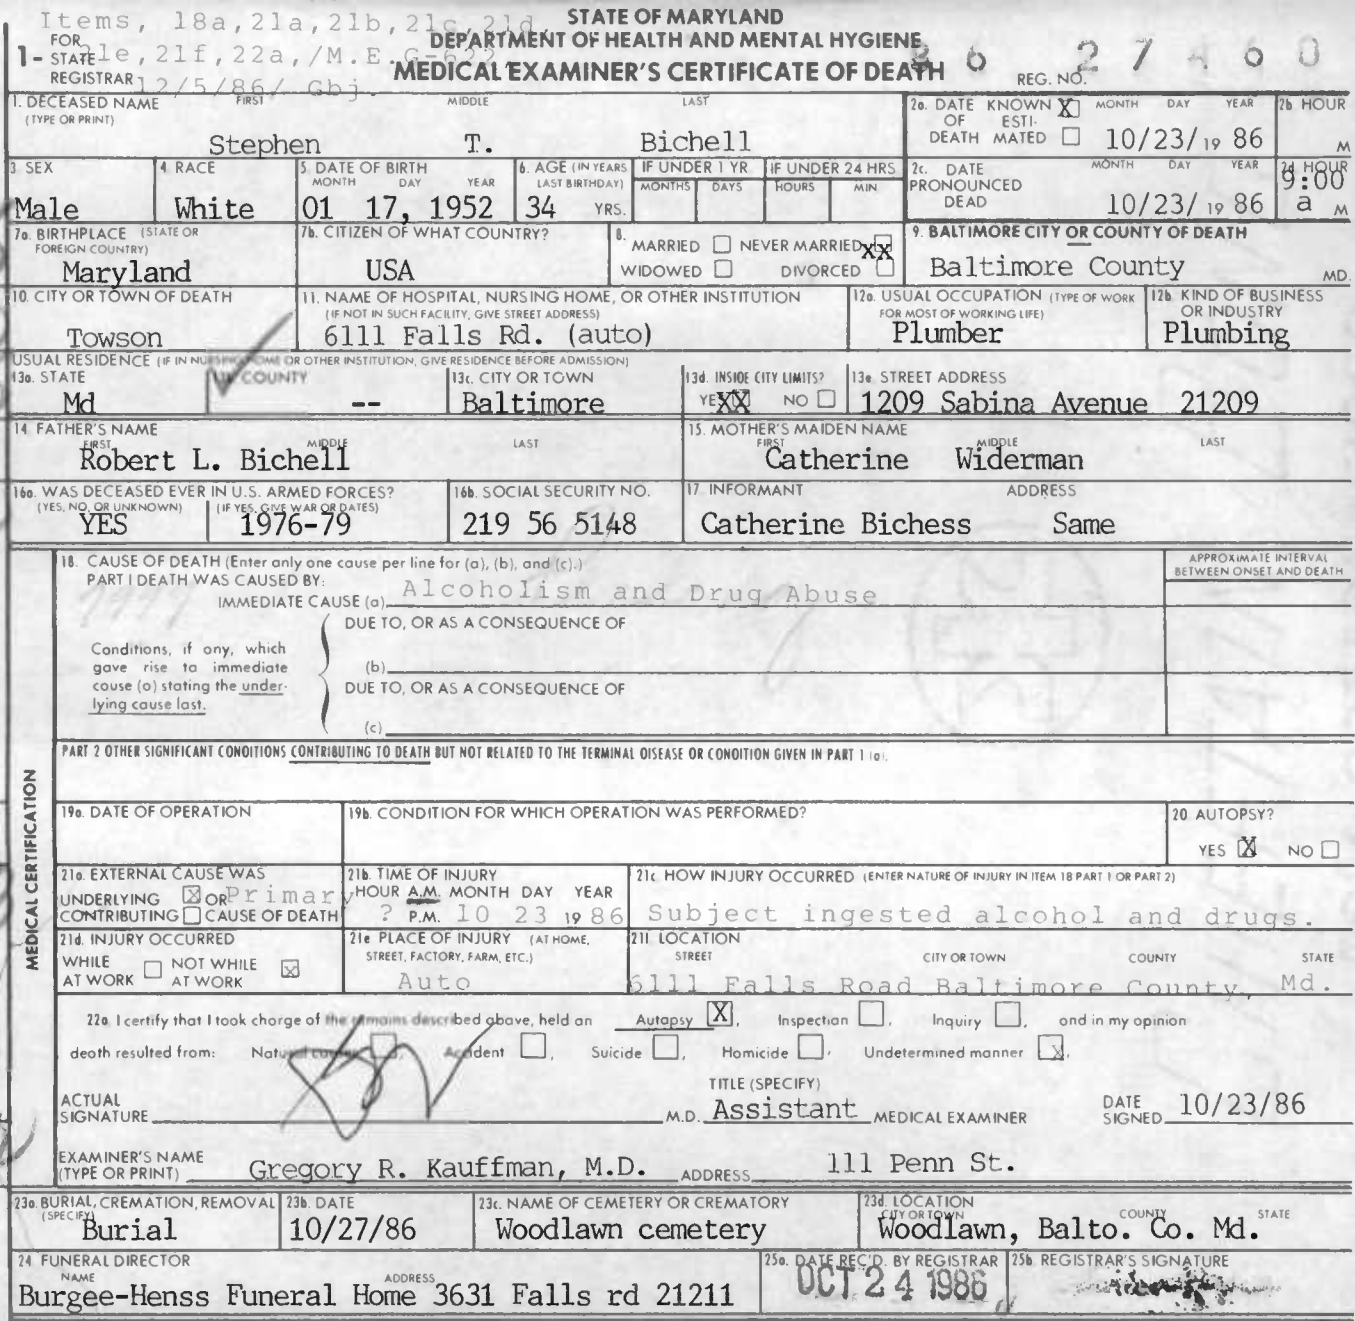 Items, 18a,21a,21b,21c,21d
STATE OF MARYLAND
FOR
DEPARTMENT OF HEALTH AND MENTAL HYGIENE
1- STATE 21e, 21f, 22a, /M.E.
REGISTRAR 12/5/86/ Gbj.
MEDICAL EXAMINER'S CERTIFICATE OF DEATH
REG. NO. 86 27460
1. DECEASED NAME FIRST MIDDLE LAST
(TYPE OR PRINT)
Stephen T. Bichell
2a. DATE KNOWN X MONTH DAY YEAR
OF ESTI-
DEATH MATED 10/23/ 19 86
2b HOUR
M
3 SEX
Male
4 RACE
White
5. DATE OF BIRTH
MONTH DAY YEAR
01 17, 1952
6. AGE (IN YEARS
LAST BIRTHDAY)
34 YRS.
IF UNDER 1 YR.
MONTHS DAYS
IF UNDER 24 HRS
HOURS MIN.
2c. DATE MONTH DAY YEAR
PRONOUNCED
DEAD 10/23/ 19 86
2d HOUR
9:00
a M
7a. BIRTHPLACE (STATE OR
FOREIGN COUNTRY)
Maryland
7b. CITIZEN OF WHAT COUNTRY?
USA
8.
MARRIED NEVER MARRIED XX
WIDOWED DIVORCED
9. BALTIMORE CITY OR COUNTY OF DEATH
Baltimore County MD.
10. CITY OR TOWN OF DEATH
Towson
11. NAME OF HOSPITAL, NURSING HOME, OR OTHER INSTITUTION
(IF NOT IN SUCH FACILITY, GIVE STREET ADDRESS)
6111 Falls Rd. (auto)
12a. USUAL OCCUPATION (TYPE OF WORK
FOR MOST OF WORKING LIFE)
Plumber
12b. KIND OF BUSINESS
OR INDUSTRY
Plumbing
USUAL RESIDENCE (IF IN NURSING HOME OR OTHER INSTITUTION, GIVE RESIDENCE BEFORE ADMISSION)
13a. STATE
Md
COUNTY
--
13c. CITY OR TOWN
Baltimore
13d. INSIDE CITY LIMITS?
YES XX NO
13e STREET ADDRESS
1209 Sabina Avenue 21209
14. FATHER'S NAME
FIRST MIDDLE LAST
Robert L. Bichell
15. MOTHER'S MAIDEN NAME
FIRST MIDDLE LAST
Catherine Widerman
16a. WAS DECEASED EVER IN U.S. ARMED FORCES?
(YES, NO, OR UNKNOWN) (IF YES, GIVE WAR OR DATES)
YES 1976-79
16b. SOCIAL SECURITY NO.
219 56 5148
17. INFORMANT ADDRESS
Catherine Bichess Same
MEDICAL CERTIFICATION
18. CAUSE OF DEATH (Enter only one cause per line for (a), (b), and (c).)
APPROXIMATE INTERVAL
BETWEEN ONSET AND DEATH
PART I DEATH WAS CAUSED BY:
IMMEDIATE CAUSE (a) Alcoholism and Drug Abuse
DUE TO, OR AS A CONSEQUENCE OF
Conditions, if any, which
gave rise to immediate
cause (a) stating the under-
lying cause last.
(b)
DUE TO, OR AS A CONSEQUENCE OF
(c)
PART 2 OTHER SIGNIFICANT CONDITIONS CONTRIBUTING TO DEATH BUT NOT RELATED TO THE TERMINAL DISEASE OR CONDITION GIVEN IN PART 1 (a).
19a. DATE OF OPERATION
19b. CONDITION FOR WHICH OPERATION WAS PERFORMED?
20 AUTOPSY?
YES X NO
21a. EXTERNAL CAUSE WAS
UNDERLYING X OR Primary
CONTRIBUTING CAUSE OF DEATH
21b. TIME OF INJURY
HOUR A.M. MONTH DAY YEAR
? P.M. 10 23 19 86
21c HOW INJURY OCCURRED (ENTER NATURE OF INJURY IN ITEM 18 PART 1 OR PART 2)
Subject ingested alcohol and drugs.
21d. INJURY OCCURRED
WHILE NOT WHILE X
AT WORK AT WORK
21e PLACE OF INJURY (AT HOME,
STREET, FACTORY, FARM, ETC.)
Auto
21f LOCATION
STREET CITY OR TOWN COUNTY STATE
6111 Falls Road Baltimore County, Md.
22a. I certify that I took charge of the remains described above, held an Autopsy X, Inspection, Inquiry, and in my opinion
death resulted from: Natural causes, Accident, Suicide, Homicide, Undetermined manner X.
ACTUAL
SIGNATURE M.D.
TITLE (SPECIFY)
Assistant MEDICAL EXAMINER
DATE
SIGNED 10/23/86
EXAMINER'S NAME
(TYPE OR PRINT) Gregory R. Kauffman, M.D. ADDRESS 111 Penn St.
23a. BURIAL, CREMATION, REMOVAL
(SPECIFY)
Burial
23b. DATE
10/27/86
23c. NAME OF CEMETERY OR CREMATORY
Woodlawn cemetery
23d. LOCATION
CITY OR TOWN COUNTY STATE
Woodlawn, Balto. Co. Md.
24 FUNERAL DIRECTOR
NAME ADDRESS
Burgee-Henss Funeral Home 3631 Falls rd 21211
25a. DATE REC'D. BY REGISTRAR
OCT 24 1986
25b. REGISTRAR'S SIGNATURE